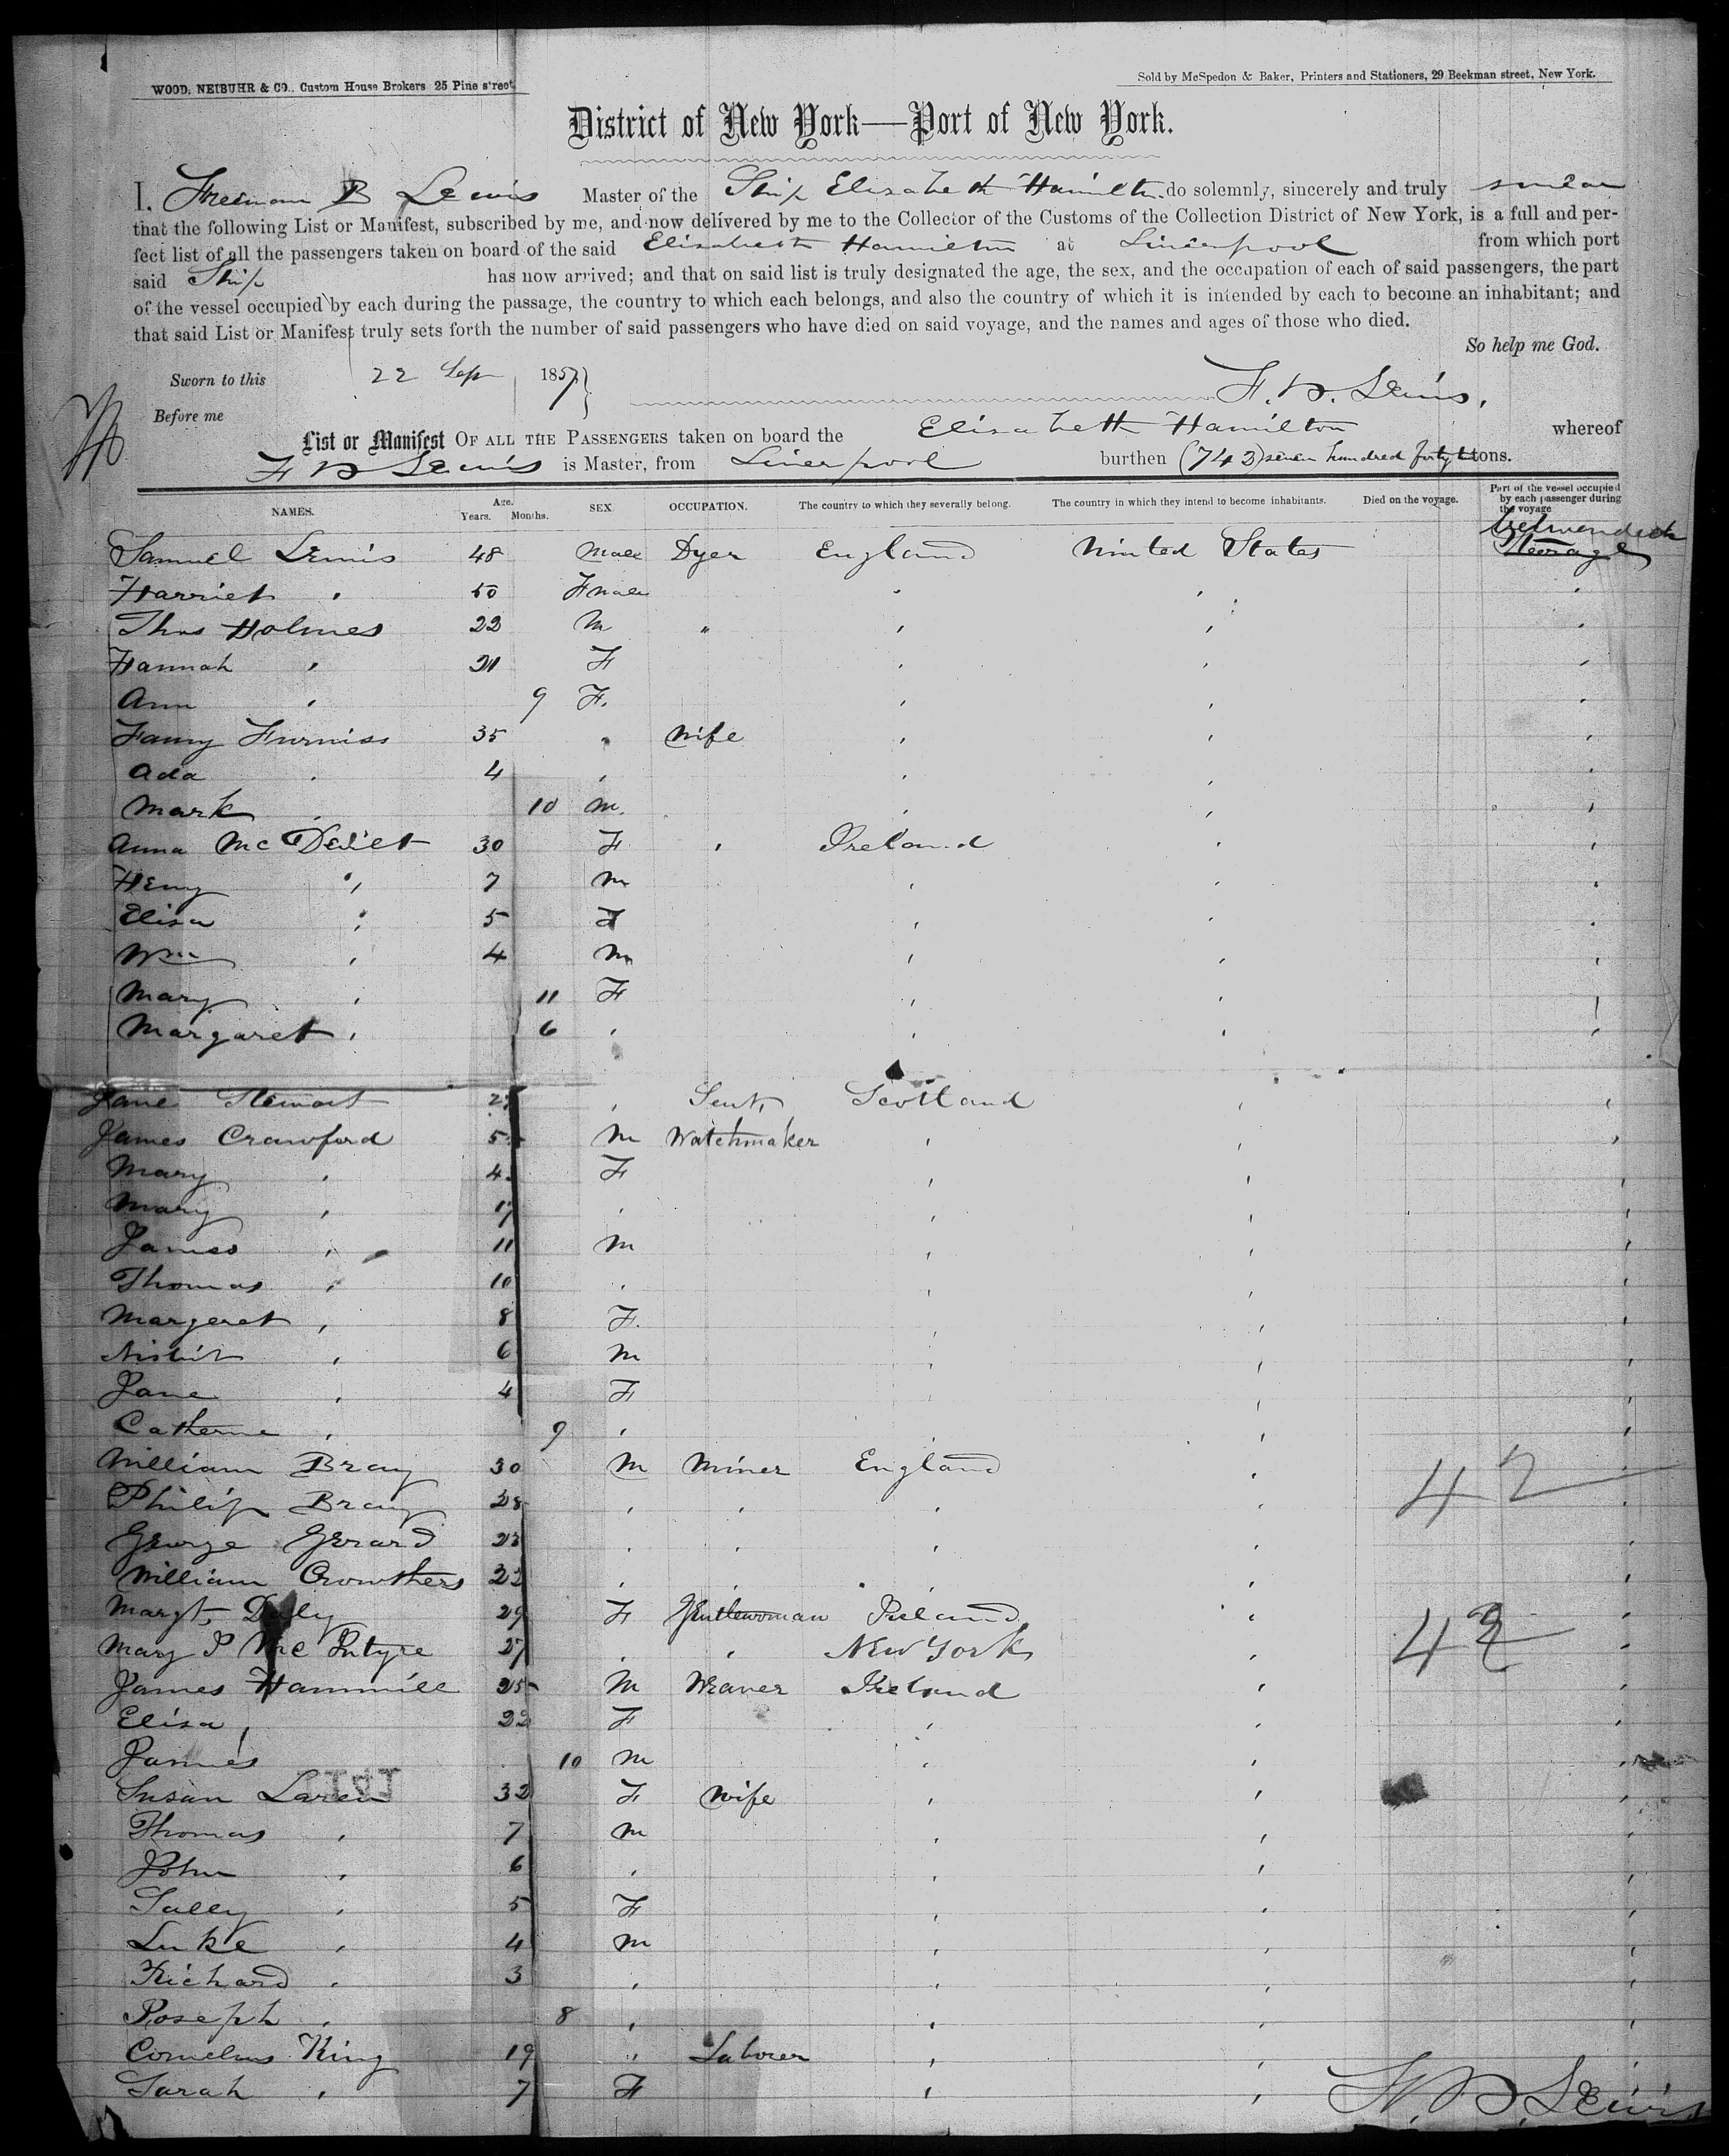 WOOD, NEIBUHR & CO., Custom House Brokers 25 Pine street
Sold by McSpedon & Baker, Printers and Stationers, 29 Beekman street, New York.
District of New York—Port of New York.
I, Freeman B Lewis Master of the Ship Elisabeth Hamilton do solemnly, sincerely and truly swear
that the following List or Manifest, subscribed by me, and now delivered by me to the Collector of the Customs of the Collection District of New York, is a full and per-
fect list of all the passengers taken on board of the said Elisabeth Hamilton at Liverpool from which port
said Ship has now arrived; and that on said list is truly designated the age, the sex, and the occupation of each of said passengers, the part
of the vessel occupied by each during the passage, the country to which each belongs, and also the country of which it is intended by each to become an inhabitant; and
that said List or Manifest truly sets forth the number of said passengers who have died on said voyage, and the names and ages of those who died.
So help me God.
Sworn to this 22 Sep 1857 }
F. B. Lewis,
Before me
List or Manifest OF ALL THE PASSENGERS taken on board the Elisabeth Hamilton whereof
F B Lewis is Master, from Liverpool burthen (743) seven hundred forty tons.
NAMES. Age. Years. Months. SEX. OCCUPATION. The country to which they severally belong. The country in which they intend to become inhabitants. Died on the voyage. Part of the vessel occupied by each passenger during the voyage
Samuel Lewis 48 Male Dyer England United States Steerage
Harriet " 50 Fmale " " "
Thos Holmes 22 M " " " "
Hannah " 21 F " " "
Ann " 9 F. " " "
Fanny Furniss 35 " Wife " " "
Ada " 4 " " " "
Mark " 10 M. " " "
Anna Mc 30 F " Ireland " "
Henry " 7 M " " "
Elisa " 5 F " " "
Wm " 4 M " " "
Mary " 11 F " " "
Margaret " 6 " " " "
Jane Stewart " Scotland " "
James Crawford M Watchmaker " " "
Mary " F " " "
Mary " 17 " " " "
James " 11 M " " "
Thomas " 10 " " " "
Margeret " 8 F. " " "
" 6 M " " "
Jane " 4 F " " "
Catherine " 9 " " " "
William Bray 30 M Miner England " "
42
Philip Bray 28 " " " " "
George Gerard 23 " " " " "
William Crowthers 22 " " " " "
Margt, Daly 29 F Gentlewoman Ireland " "
42
Mary P Mc Intyre 27 " " New York " "
James Hammill 25 M Weaver Ireland " "
Elisa " 22 F " " "
James 10 M " " "
Susan Laren 32 F Wife " " "
Thomas " 7 M " " "
John " 6 " " " "
Salley " 5 F " " "
Luke " 4 M " " "
Richard " 3 " " " "
Joseph " 8 " " " "
Cornelius King 19 " Laborer " " "
Sarah " 7 F " "
F. B. Lewis